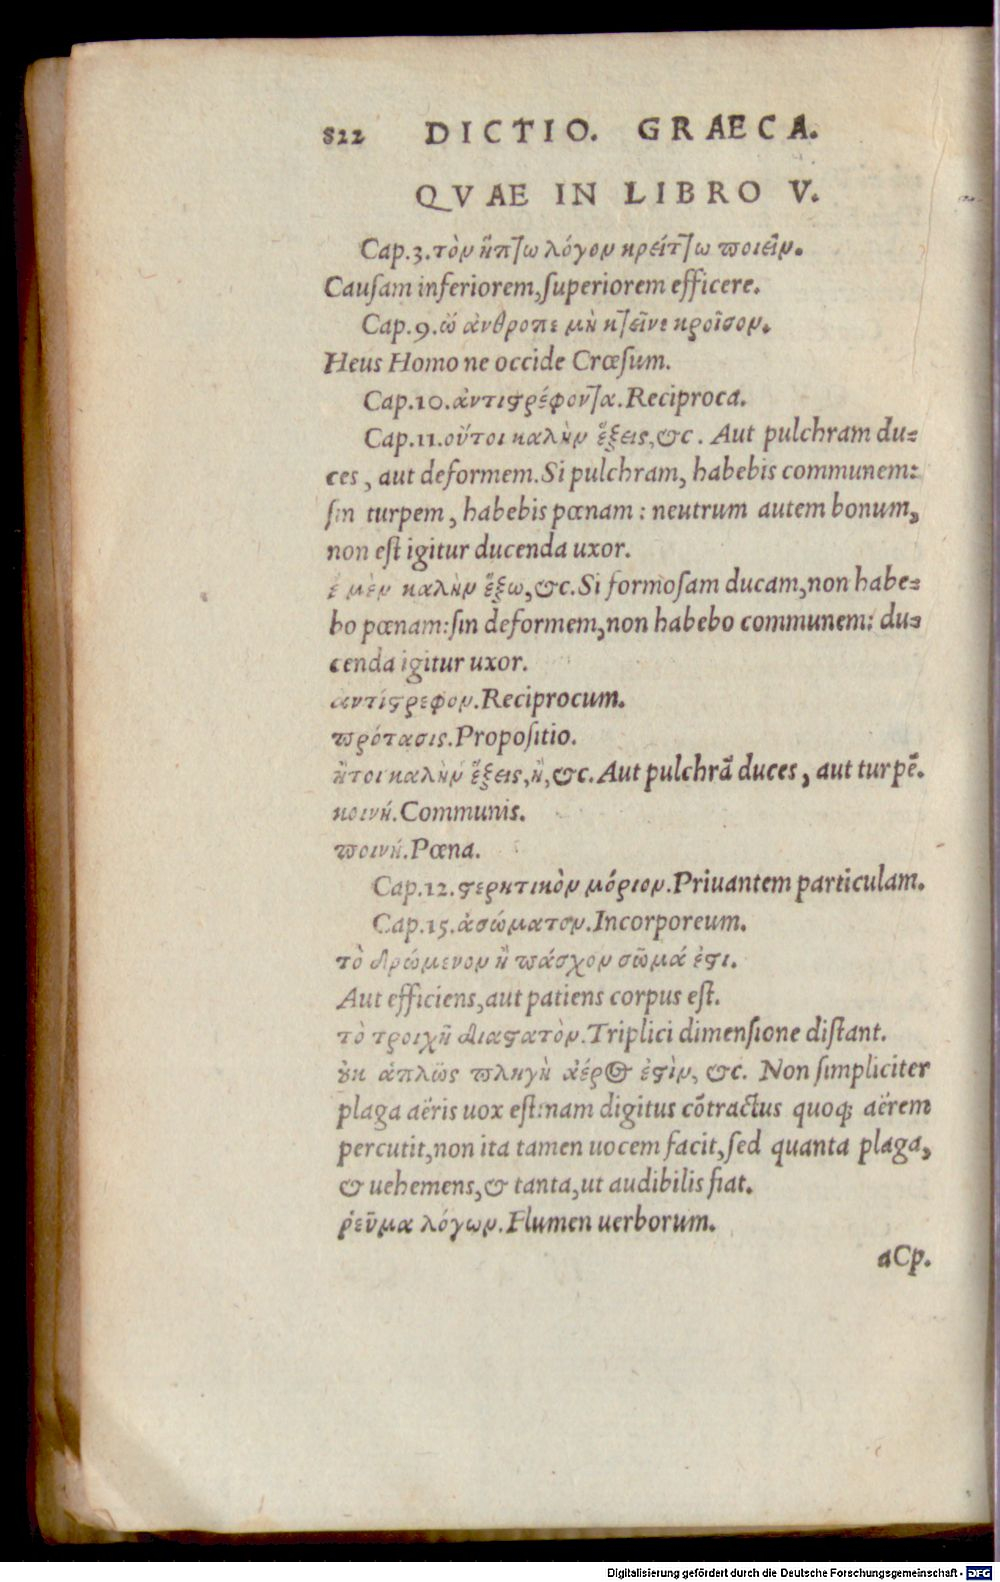 822 DICTIO. GRAECA.
QVAE IN LIBRO V.
Cap.3. τὸν ἥττω λόγον κρείττω ποιεῖν.
Causam inferiorem, superiorem efficere.
Cap.9. ὤ ἀνθροπε μὴ κτεῖνε κροῖσον.
Heus Homo ne occide Crœsum.
Cap.10. ἀντιστρέφοντα. Reciproca.
Cap.11. οὔτοι καλὴν ἕξεις, &c. Aut pulchram du=
ces, aut deformem. Si pulchram, habebis communem:
sin turpem, habebis pœnam: neutrum autem bonum,
non est igitur ducenda uxor.
ἐ μὲν καλὴν ἕξω, &c. Si formosam ducam, non habe=
bo pœnam: sin deformem, non habebo communem: du=
cenda igitur uxor.
αντίστρεφον. Reciprocum.
πρότασις. Propositio.
ἤτοι καλὴν ἕξεις, ἢ, &c. Aut pulchrā duces, aut turpē.
κοινή. Communis.
ποινή. Pœna.
Cap.12. στερητικὸν μόριον. Priuantem particulam.
Cap.15. ἀσώματον. Incorporeum.
τὸ δρώμενον ἢ πάσχον σῶμά ἐστι.
Aut efficiens, aut patiens corpus est.
τὸ τροιχῆ διαστατὸν. Triplici dimensione distant.
ȣκ ἁπλῶς πληγὴ ἀέρος ἐστὶν, &c. Non simpliciter
plaga aëris uox est: nam digitus cōtractus quoq; aërem
percutit, non ita tamen uocem facit, sed quanta plaga,
& uehemens, & tanta, ut audibilis fiat.
ῥεῦμα λόγων. Flumen uerborum.
aCp.
Digitalisierung gefördert durch die Deutsche Forschungsgemeinschaft - DFG